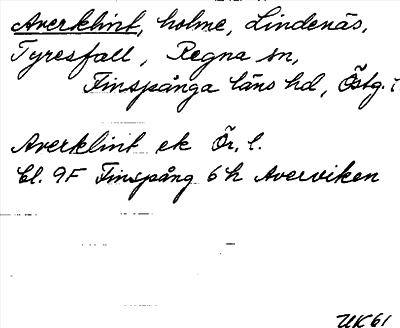 Averklint, holme, Lindenäs,
Tyresfall, Regna sn,
Finspånga läns hd, Östg.
Averklint ek Ör. l.
bl. 9F Finspång 6h Averviken
UK 61